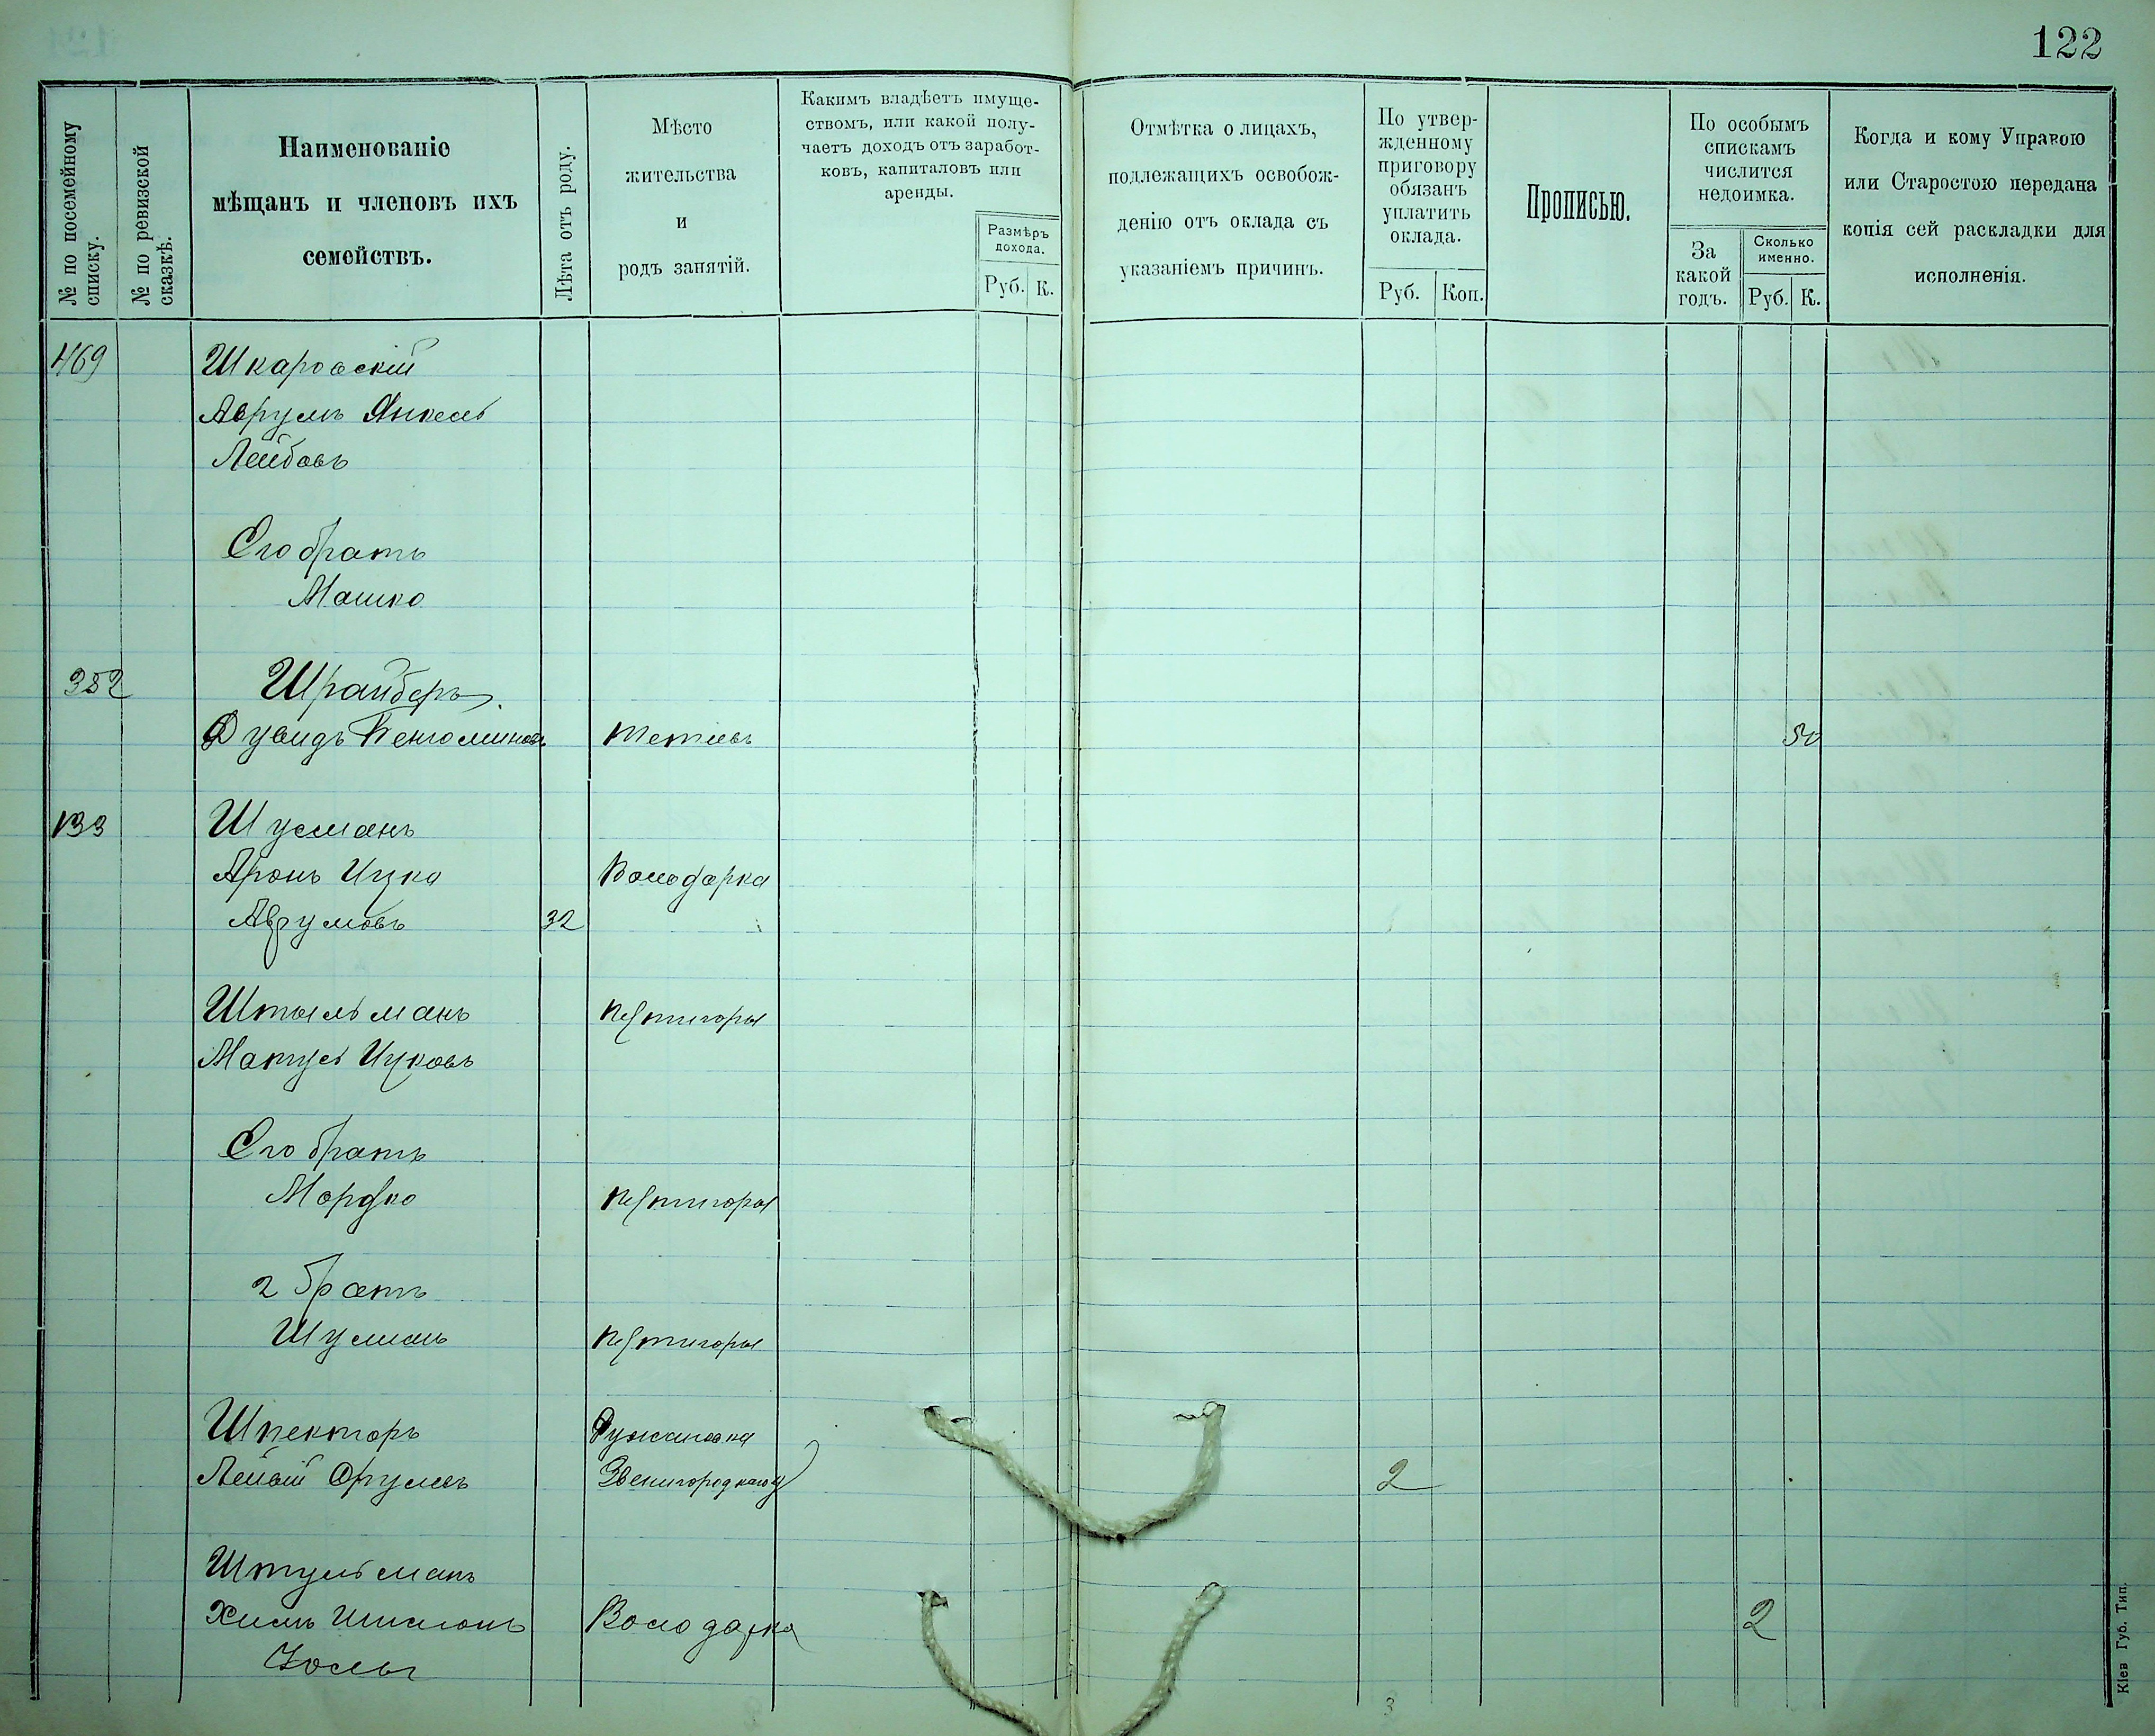 122
№ по посемейному
списку.
№ по ревизской
сказкѣ.
Наименованіе
мѣщанъ и членовъ ихъ
семействъ.
Лѣта отъ роду.
Мѣсто
жительства
и
родъ занятій.
Какимъ владѣетъ имуще-
ствомъ, или какой полу-
чаетъ доходъ отъ заработ-
ковъ, капиталовъ или
аренды.
Размѣръ
дохода.
Руб. К.
Отмѣтка о лицахъ,
подлежащихъ освобож-
денію отъ оклада съ
указаніемъ причинъ.
По утвер-
жденному
приговору
обязанъ
уплатить
оклада.
Руб. Коп.
Прописью.
По особымъ
спискамъ
числится
недоимка.
За
какой
годъ.
Сколько
именно.
Руб. К.
Когда и кому Управою
или Старостою передана
копія сей раскладки для
исполненія.
469 Шкаровскій
Аврумъ Янкель
Лейбовъ
Его братъ
Машко
352 Шрайберъ
Дувидъ Бенюминовъ Тетіевъ 50
133 Шусманъ
Аронъ Ицка Володарка
Аврумовъ 32
Штыльманъ Пятигоры
Матусь Ицковъ
Его братъ
Мордко Пятигоры
2 братъ
Шулимъ Пятигоры
Шпекторъ
Звенигородка 2
Штульманъ
Хаимъ Володарка 2
3
Кіев Губ. Тип.